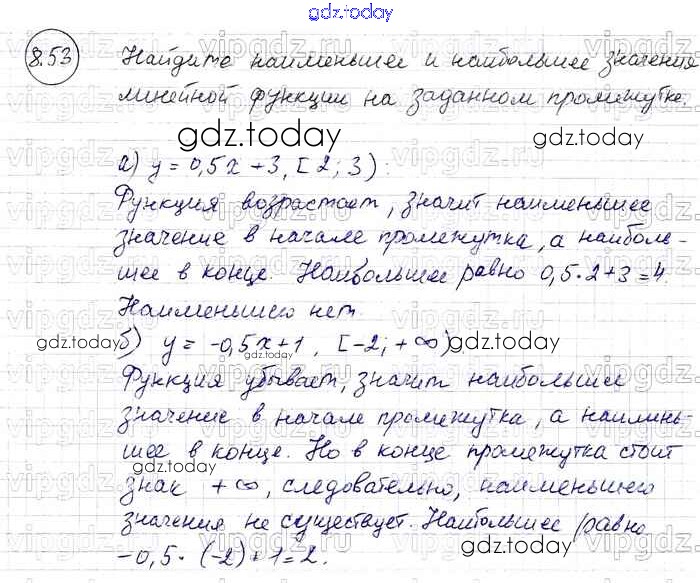 gdz.today
8.53 Найдите наименьшее и наибольшее значения
линейной функции на заданном промежутке.
gdz.today gdz.today
а) y = 0,5x + 3, [2; 3):
Функция возрастает, значит наименьшее
значение в начале промежутка, а наиболь-
шее в конце. Наибольшее равно 0,5·2+3=4.
Наименьшего нет.
gdz.today б) y = -0,5x+1, [-2; +∞) gdz.today
Функция убывает, значит наибольшее
значение в начале промежутка, а наимень-
шее в конце. Но в конце промежутка стоит
gdz.today
знак +∞, следовательно, наименьшего
значения не существует. Наибольшее равно
-0,5·(-2)+1=2.